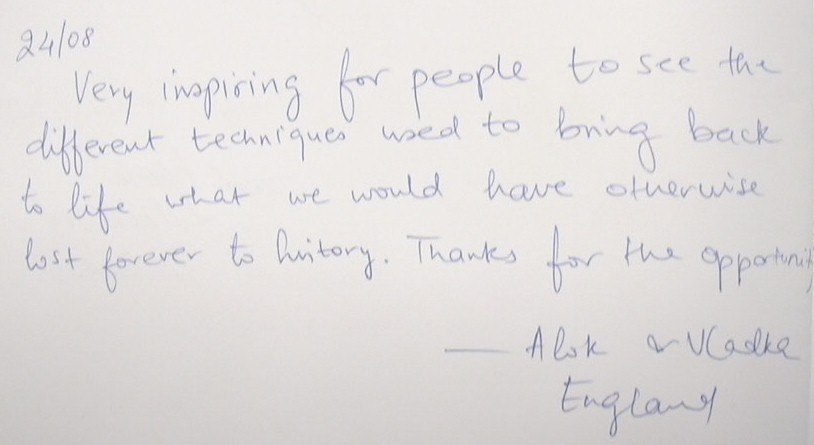 24/08
Very inspiring for people to see the
different techniques used to bring back
to life what we would have otherwise
lost forever to history. Thanks for the opportunity
— Alok & Vladka
England